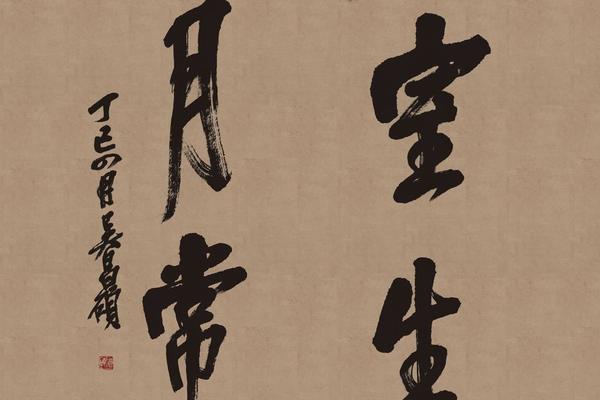 室生
月常
丁巳四月吳昌碩